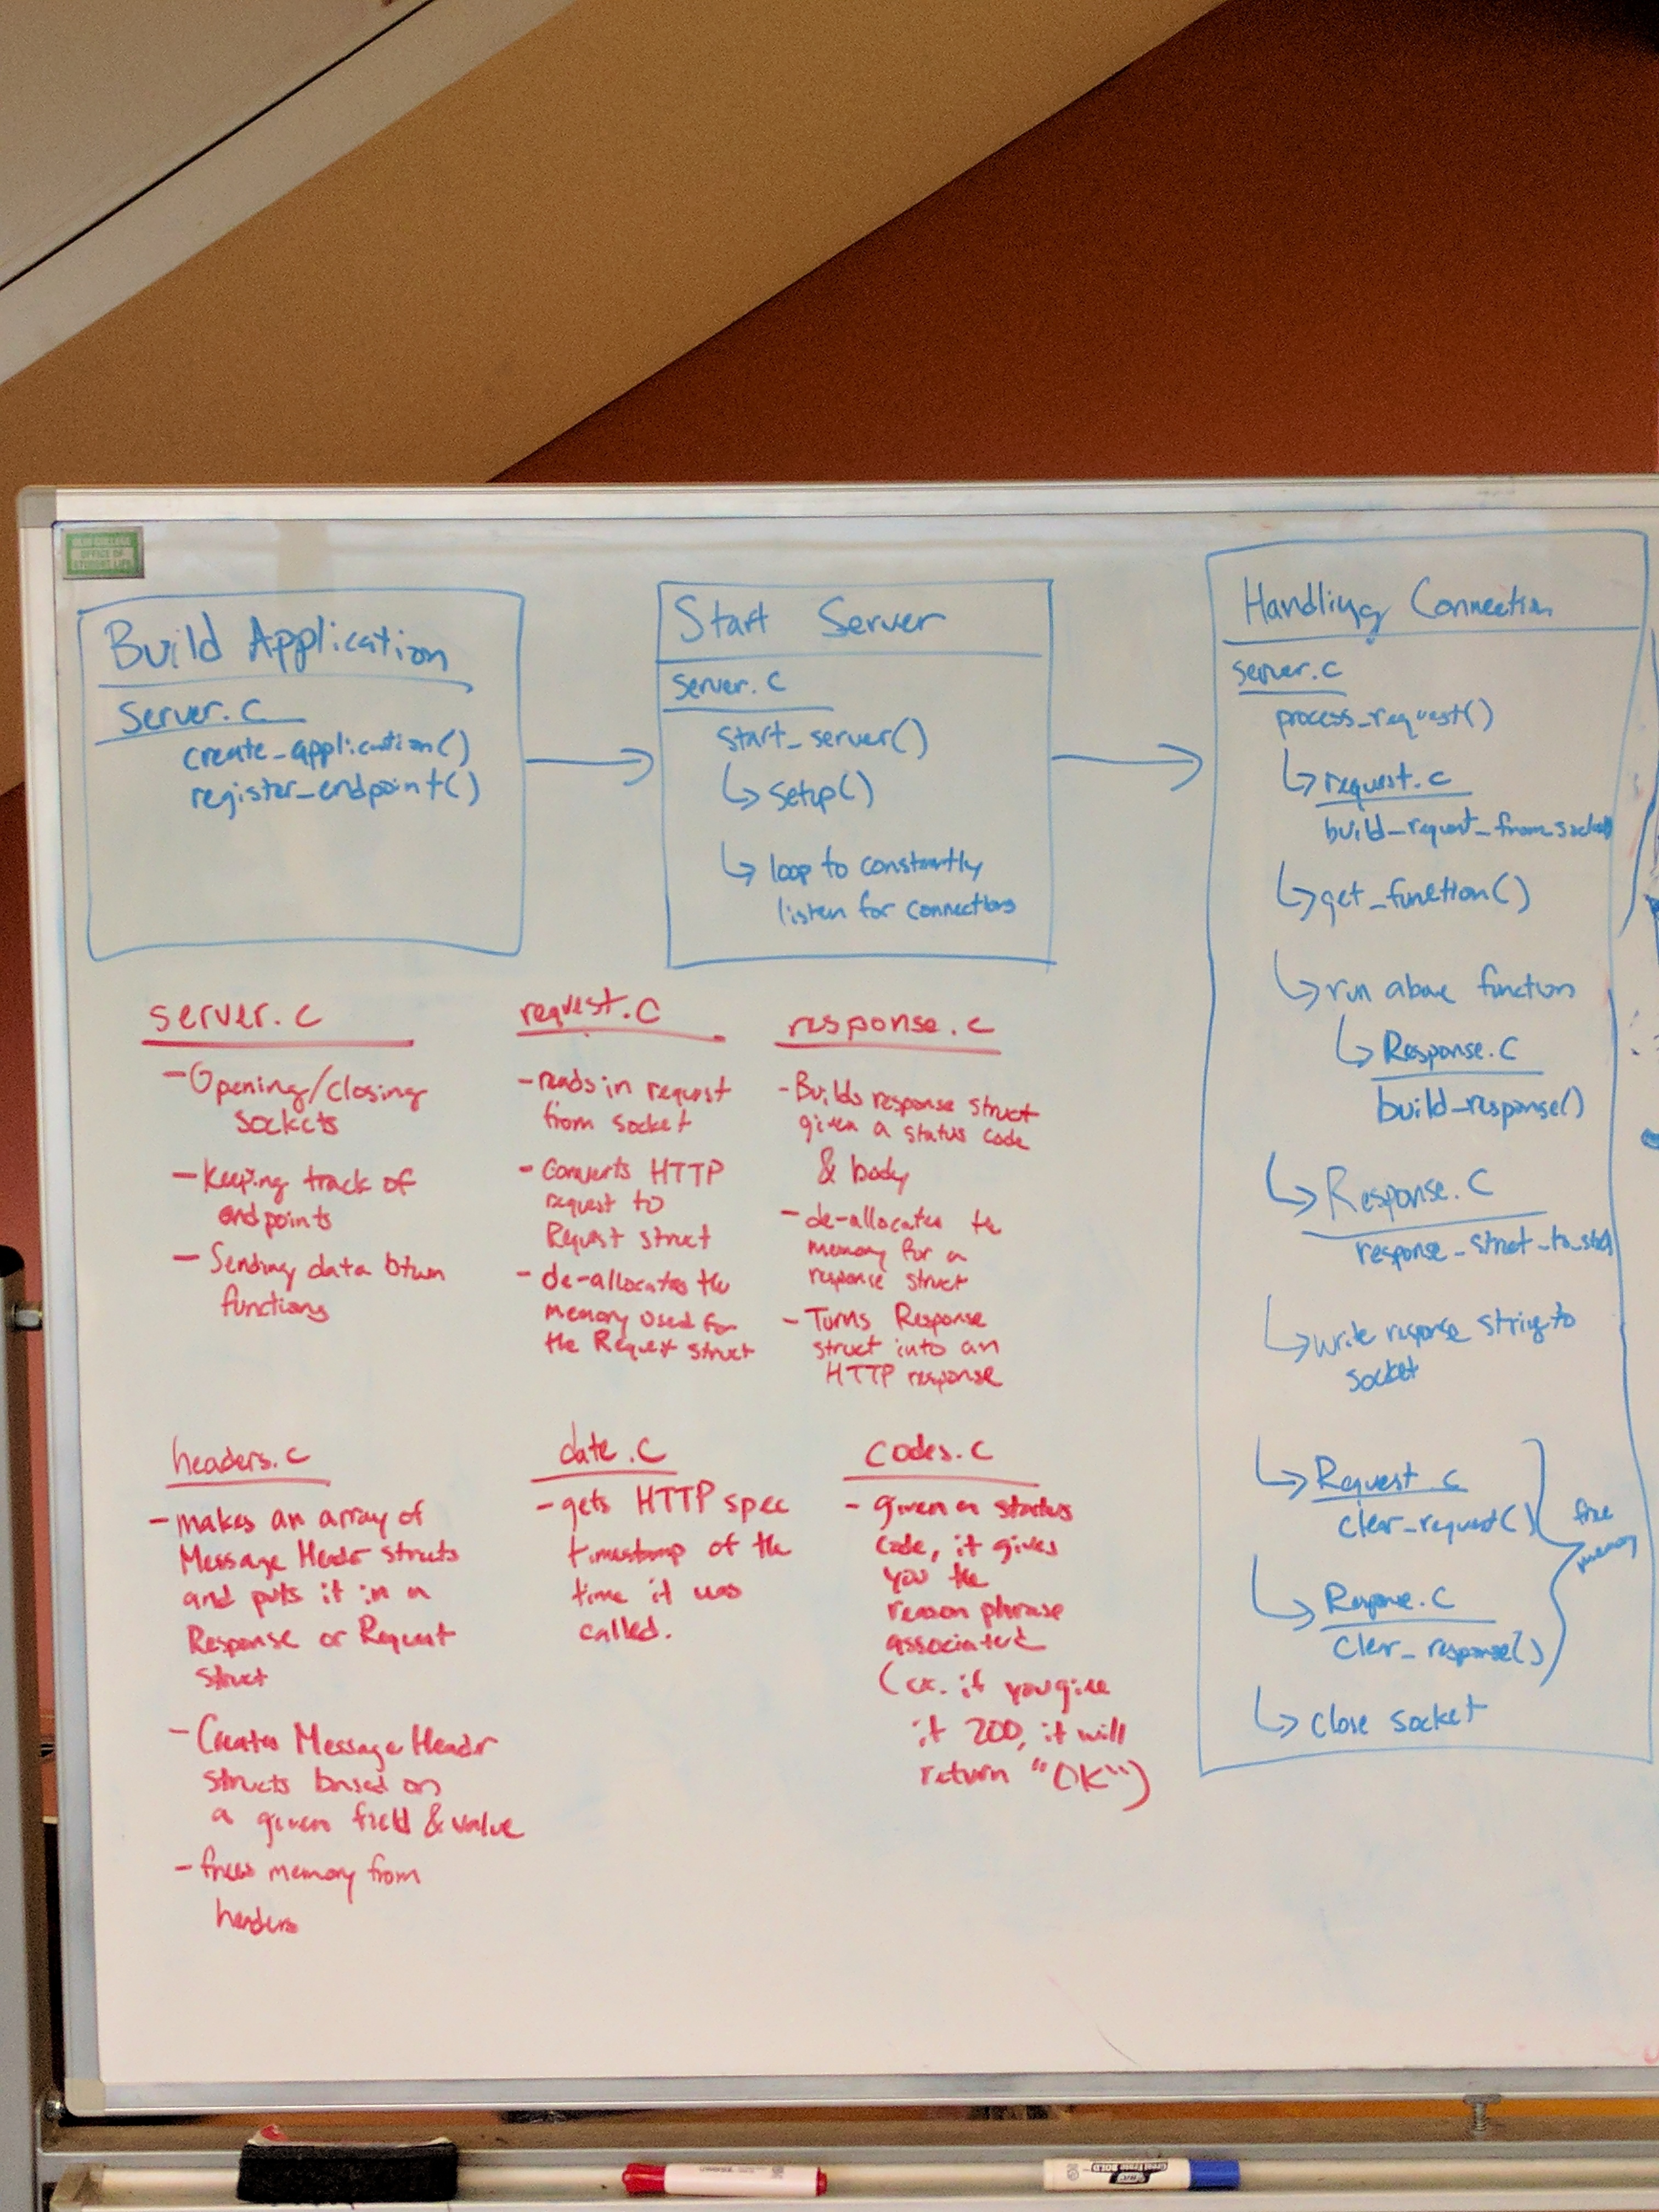 OLIN COLLEGE
OFFICE OF
STUDENT LIFE
Build Application
Server.c
create_application()
register_endpoint()
Start Server
server.c
start_server()
↳ setup()
↳ loop to constantly
listen for connections
Handling Connection
server.c
process_request()
↳ request.c
build_request_from_socket()
↳ get_function()
↳ run above function
↳ Response.c
build_response()
↳ Response.c
response_struct_to_str()
↳ write response string to
socket
↳ Request.c
clear_request()
↳ Response.c
clear_response()
free
memory
↳ close socket
server.c
- Opening/closing
sockets
- Keeping track of
endpoints
- Sending data btwn
functions
request.c
- reads in request
from socket
- Converts HTTP
request to
Request struct
- de-allocates the
memory used for
the Request struct
response.c
- Builds response struct
given a status code
& body
- de-allocates the
memory for a
response struct
- Turns Response
struct into an
HTTP response
headers.c
- makes an array of
Message Header structs
and puts it in a
Response or Request
struct
- Creates Message Header
structs based on
a given field & value
- frees memory from
headers
date.c
- gets HTTP spec
timestamp of the
time it was
called.
codes.c
- given a status
code, it gives
you the
reason phrase
associated
(ex. if you give
it 200, it will
return "OK")